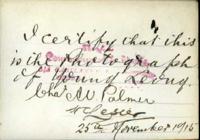 I certify that this
is the photograph
of Young Leong.
Chas. W. Palmer
25th November 1915